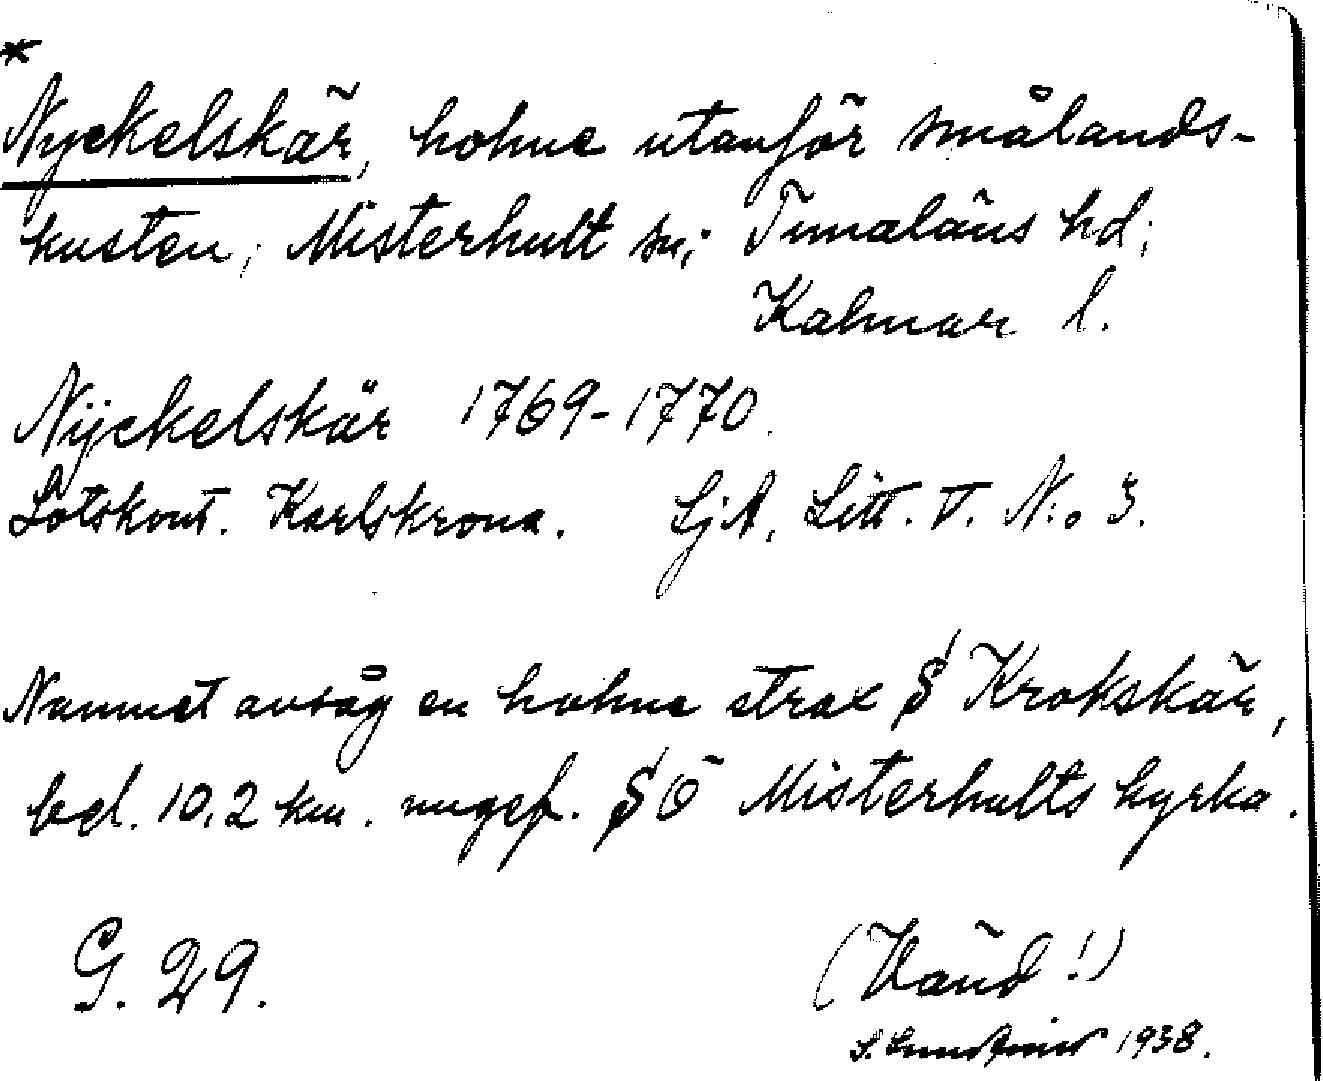 *
Nyckelskär, holme utanför smålands-
kusten; Misterhult sn; Tunaläns hd;
Kalmar l.
Nÿckelskär 1769-1770.
Lotskont. Karlskrona. SjA, Litt. T. N:o 3.
Namnet avsåg en holme strax S Krokskär,
bel. 10,2 km. ungef. SÖ Misterhults kyrka.
G. 29.
(Vänd!)
S. 1938.